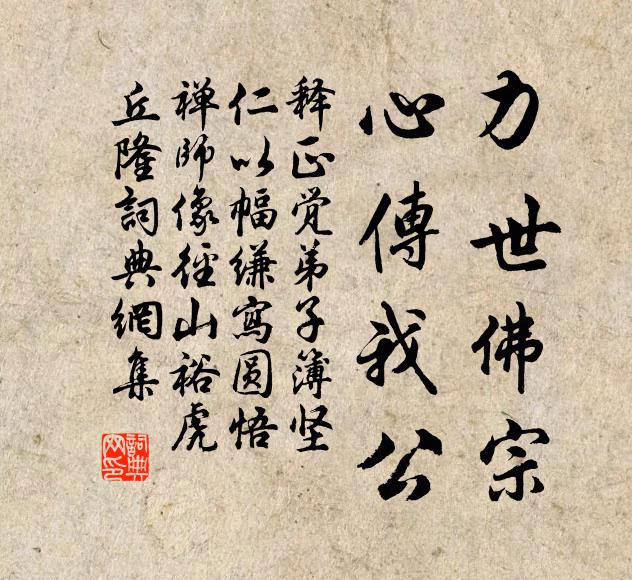 力世佛宗
心傳我公
释正觉弟子簿坚
仁以幅缣寫圓悟
禅師像徑山裕虎
丘隆詞典網集
詞典網印